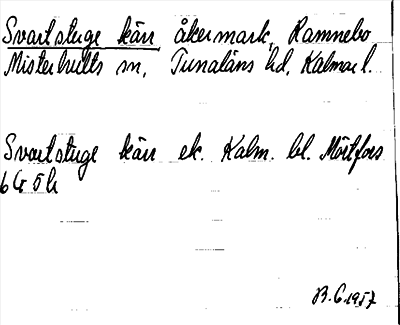 Svartstuge kärr åkermark, Ramnebo
Misterhults sn, Tunaläns hd, Kalmar l.
Svartstuge kärr ek. Kalm. bl. Mörtfors
6G 5h
B.G 1957